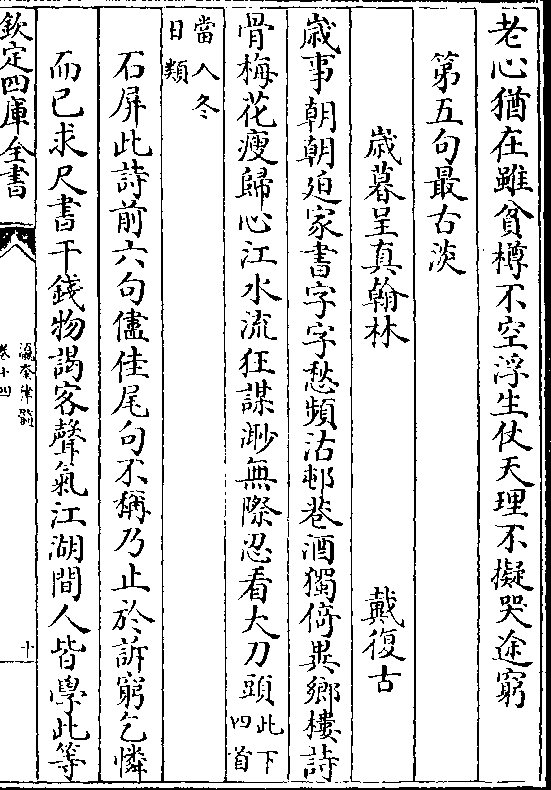 老心猶在雖貧樽不空浮生仗天理不擬哭途窮
第五句最古淡
歳暮呈真翰林　戴復古
歳事朝朝廹家書字字愁頻沽邨巷酒獨倚異鄉樓詩
骨梅花瘦歸心江水流狂謀渺無際忍看大刀頭此下四首
當入冬日類
石屏此詩前六句儘佳尾句不稱乃止於訴窮乞憐
而已求尺書干錢物謁客聲氣江湖間人皆學此等
欽定四庫全書
瀛奎律髓
卷十四
十